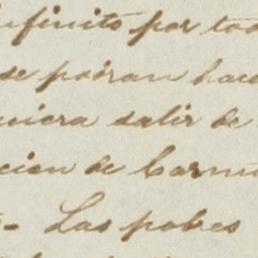 nfinito por tod
se poiran hace
uiera salir de
cion de Carmo
- Las pobres